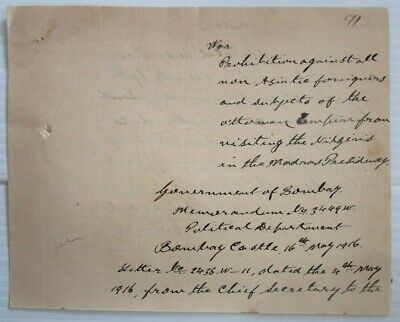 71
War
Prohibition against all
non Asiatic foreigners
and subjects of the
ottoman Empire from
visiting the Nilgiris
in the Madras Presidency
Government of Bombay
Memorandum No 3449 W.
Political Department
Bombay Castle 16th May 1916.
Letter No 2436-W-11, dated the 4th May
1916, from the Chief Secretary to the